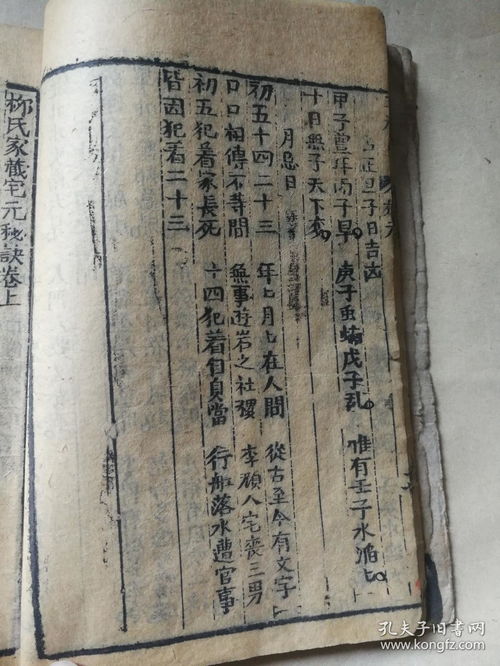 占正旦子日吉凶
甲子豊年丙子旱。庚子虫蝗戊子乱。惟有壬子水滔匕。
十日無子天下变。
月忌日
初五十四二十三 年匕月匕在人間 從古至今有文字
口口相傳不等閒 無事遊岩之社稷 李顏八宅喪三男
初五犯着家長死 十四犯着自身當 行船落水遭官事
皆因犯着二十三
柳氏家藏宅元秘訣卷上
孔夫子旧书网
www.kongfz.com